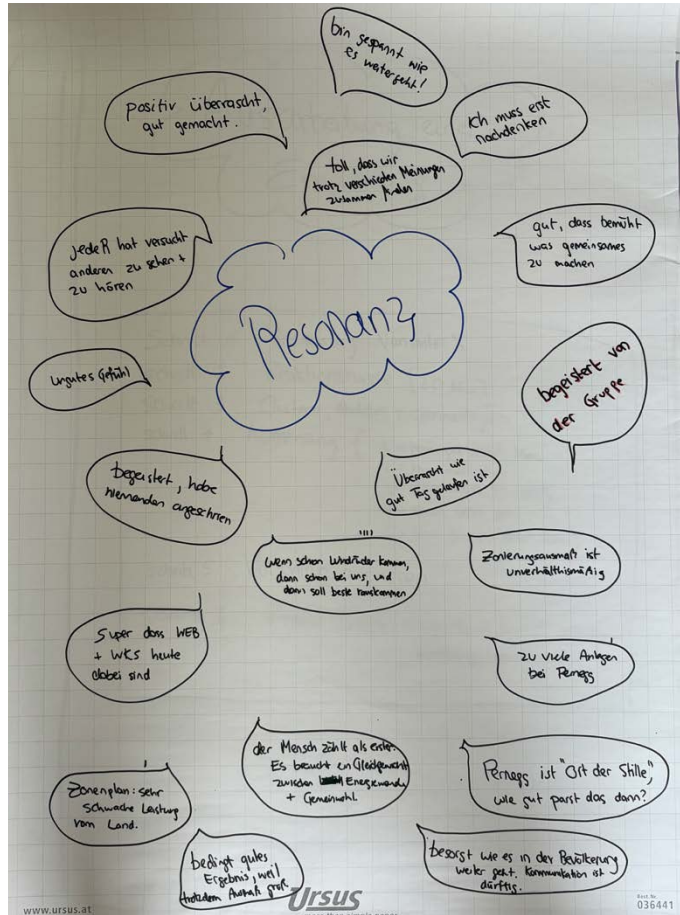 bin gespannt wie
es weitergeht!
positiv überrascht,
gut gemacht.
Ich muss erst
nachdenken
toll, dass wir
trotz verschieden Meinungen
zusammen finden
jedeR hat versucht
anderen zu sehen +
zu hören
gut, dass bemüht
was gemeinsames
zu machen
Resonanz
ungutes Gefühl
begeistert von
der Gruppe
begeistert, habe
niemanden angeschrien
Überrascht wie
gut Tag gelaufen ist
wenn schon Windräder kommen,
dann schon bei uns, und
dann soll beste rauskommen
Zonierungsausmaß ist
unverhältnismäßig
Super dass WEB
+ WKS heute
dabei sind
zu viele Anlagen
bei Pernegg
der Mensch zählt als erster.
Es braucht ein Gleichgewicht
zwischen Energiewende
+ Gemeinwohl
Pernegg ist "Ort der Stille",
wie gut passt das dann?
Zonenplan: sehr
schwache Leistung
vom Land.
bedingt gutes
Ergebnis, weil
trotzdem Ausmaß groß
besorgt wie es in der Bevölkerung
weiter geht. Kommunikation ist
dürftig.
www.ursus.at
Ursus
Best. Nr.
036441